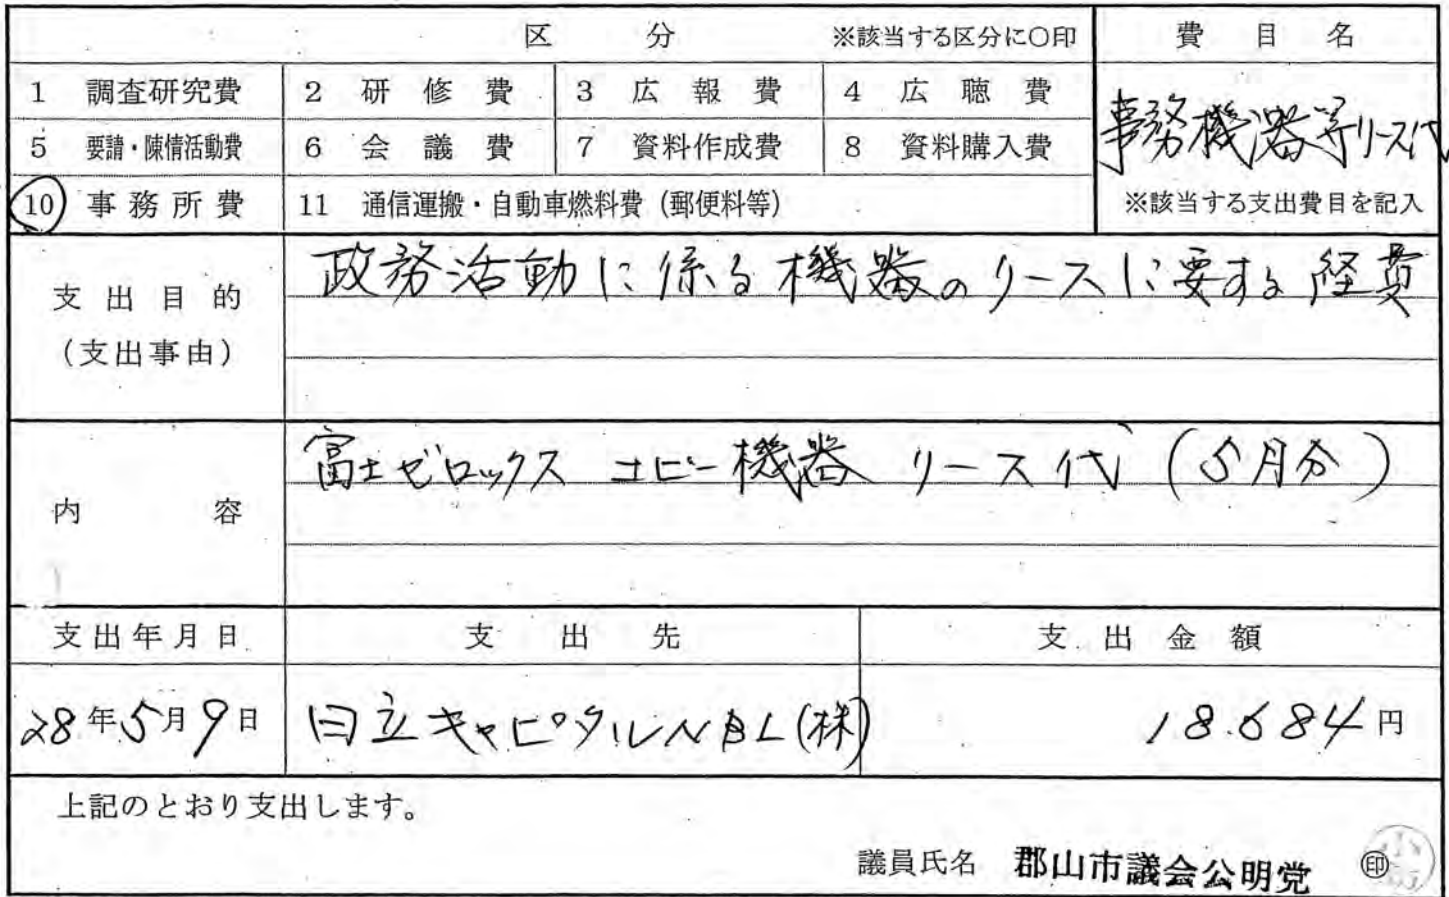 区 分 ※該当する区分に○印 費 目 名
1 調査研究費 2 研 修 費 3 広 報 費 4 広 聴 費
事務機器等リース代
5 要請・陳情活動費 6 会 議 費 7 資料作成費 8 資料購入費
10 事 務 所 費 11 通信運搬・自動車燃料費（郵便料等） ※該当する支出費目を記入
支 出 目 的
（支出事由）
政務活動に係る機器のリースに要する経費
内 容
富士ゼロックス コピー機器 リース代（5月分）
支出年月日 支 出 先 支 出 金 額
28年5月9日 日立キャピタルNBL(株) 18.684円
上記のとおり支出します。
議員氏名 郡山市議会公明党 ㊞